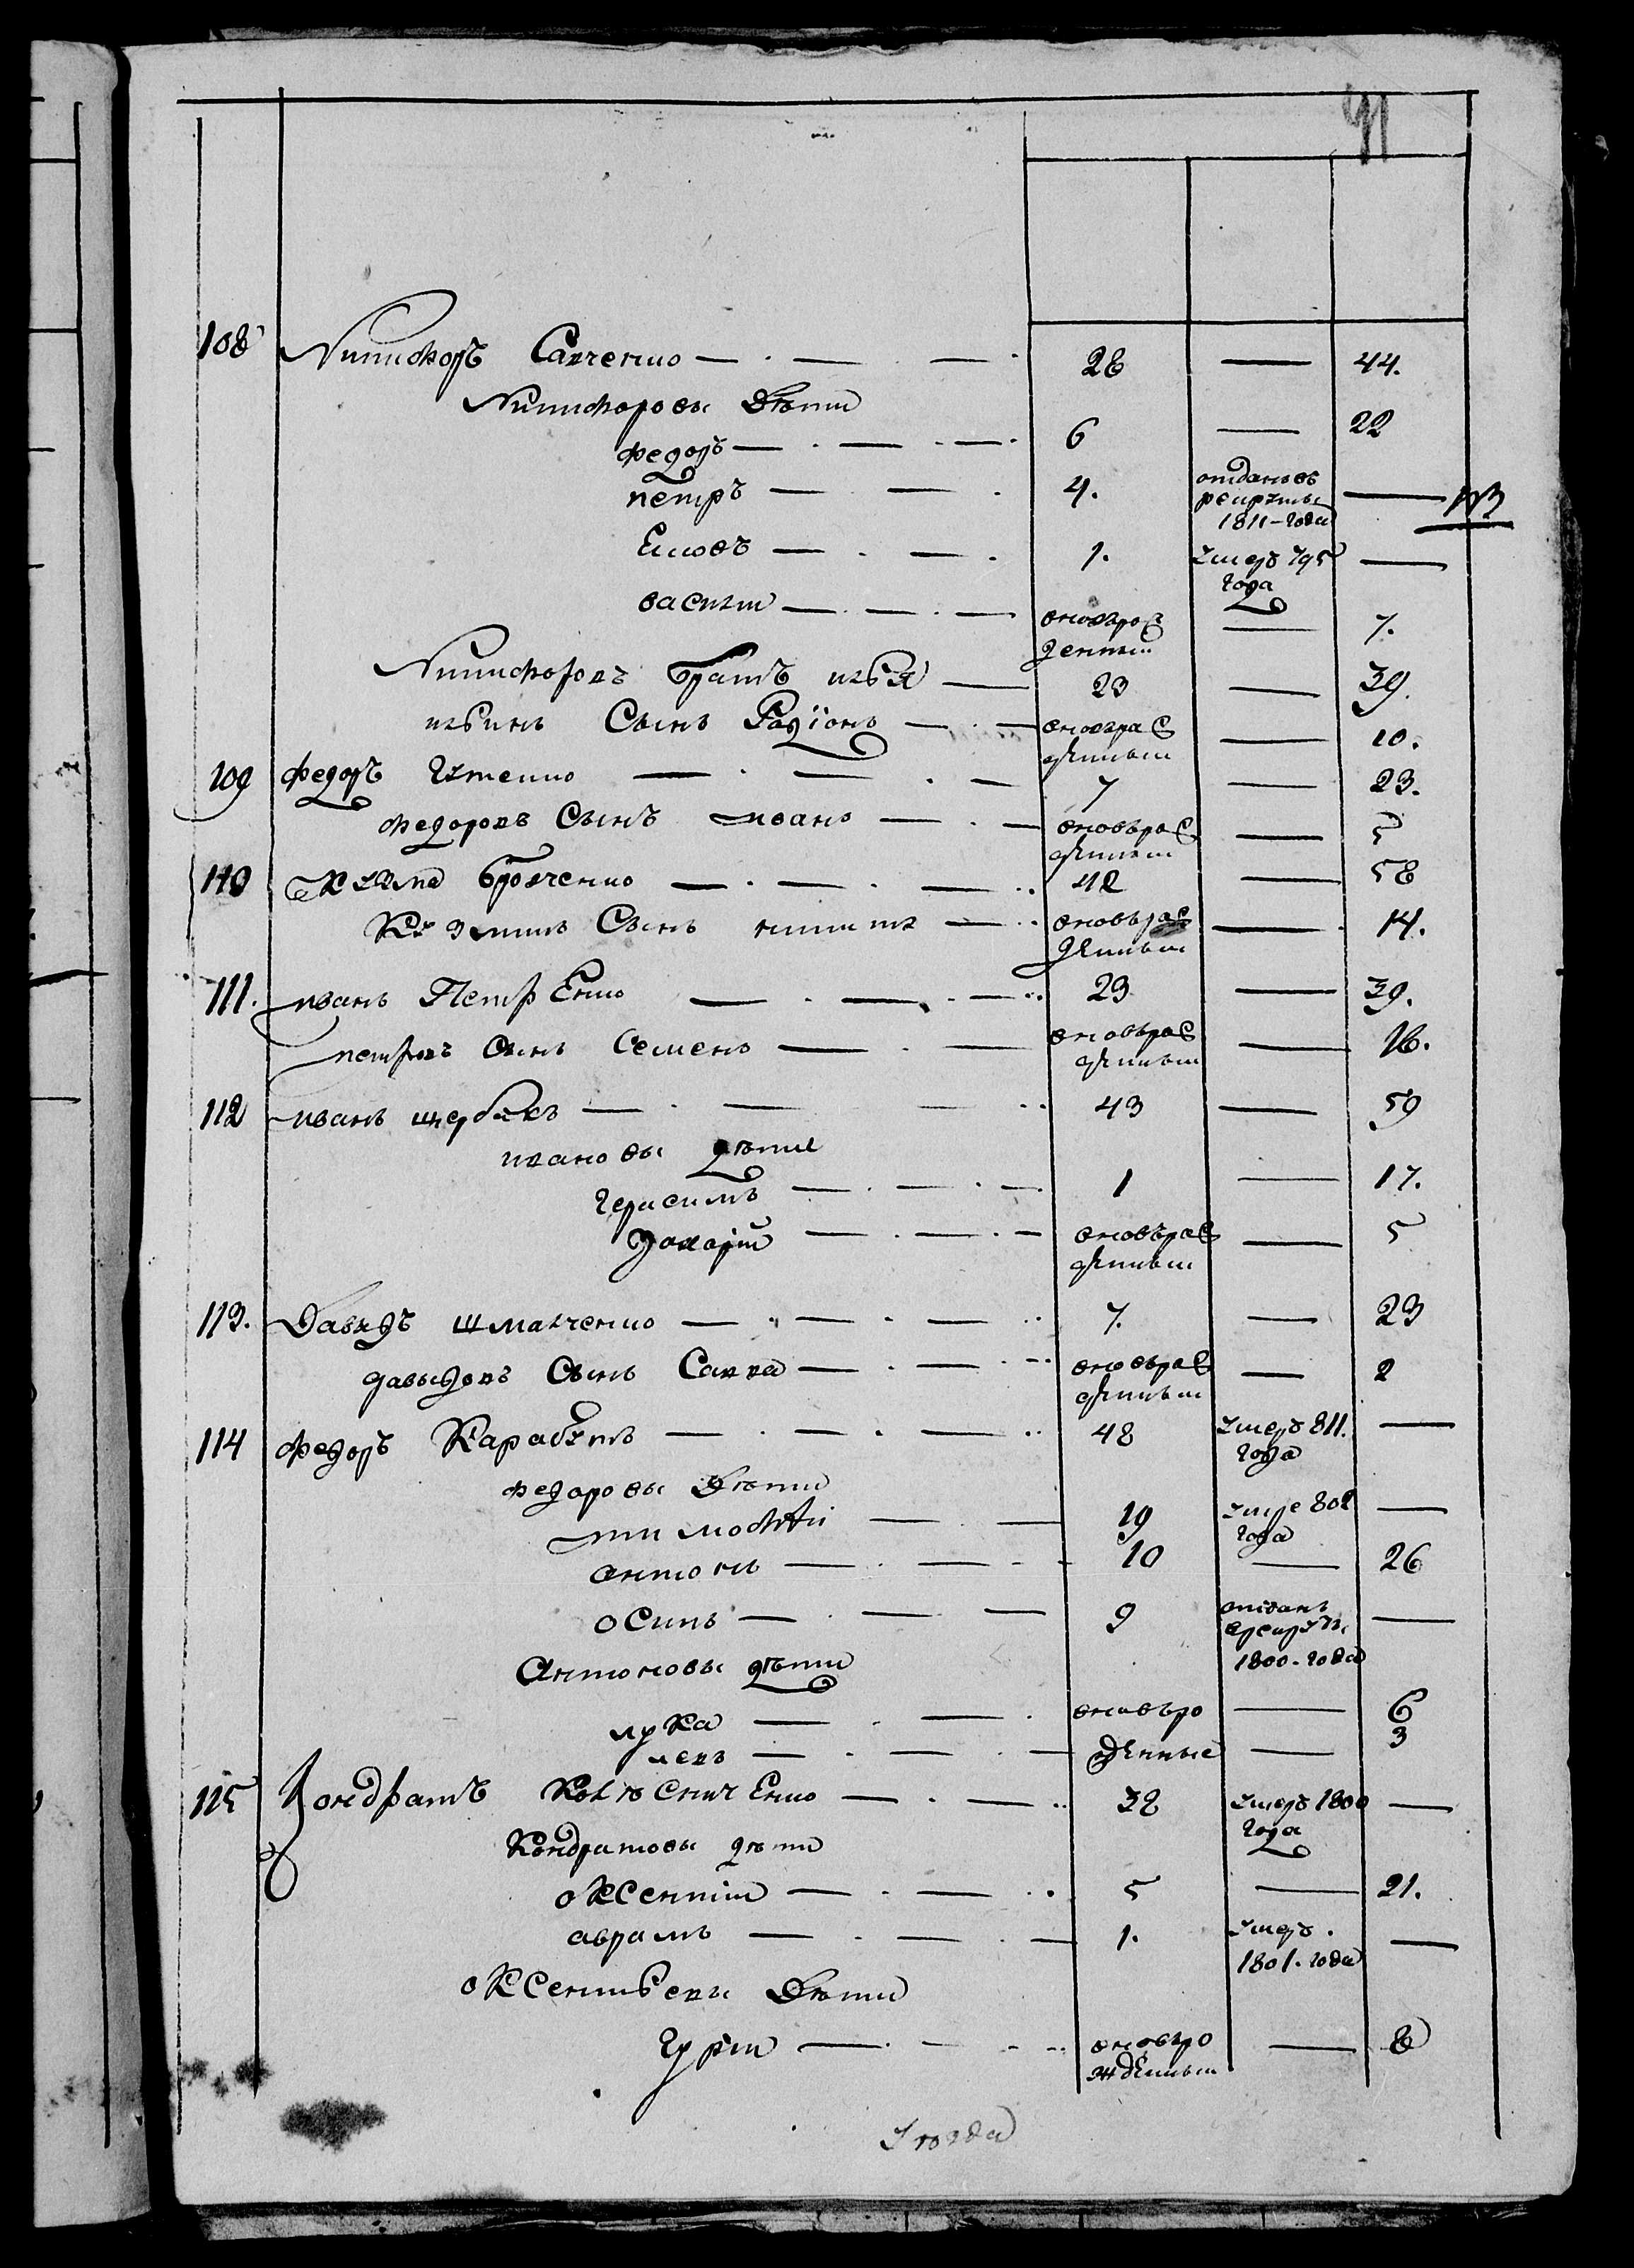 91
108 Никифоръ Савченко 28 — 44.
Никифоровы Дѣти
Федоръ 6 — 22
петръ 4. отданъ въ рекруты 1811-года —
1. умеръ 795 года —
василий вновьрожденный — 7.
Никифоровъ братъ илья 23 — 39.
ильинъ Сынъ Радіонъ вновьражденный — 10.
109 Федоръ 7 — 23.
Федоровъ Сынъ иванъ вновьражденный — 5
110 Кузма 42 — 58
Кузминъ Сынъ никита вновьражденный — 14.
111. иванъ ПетрЕнко 23 — 39.
петровъ Сынъ Семенъ вновьражденный — 16.
112 иванъ щербакъ 43 — 59
ивановы дѣти
герасимъ 1 — 17.
Захарій вновьражденный — 5
113. Давидъ шмалченко 7. — 23
давыдовъ Сынъ Савва вновьражденный — 2
114 Федоръ Карабутъ 48 умеръ 811. года —
Федоровы Дѣти
тимофѣй 19 умре 802 года —
антонъ 10 — 26
осипъ 9 отданъ врекруты 1800-года —
Антоновы дѣти
лука вновьро — 6
левъ жденные — 3
115 Кондратъ 32 умеръ 1800 года —
Кондратовы дѣти
оксентій 5 — 21.
аврамъ 1. умеръ. 1801-года —
оксентьевы Дѣти
гурій вновьрожденный — 8